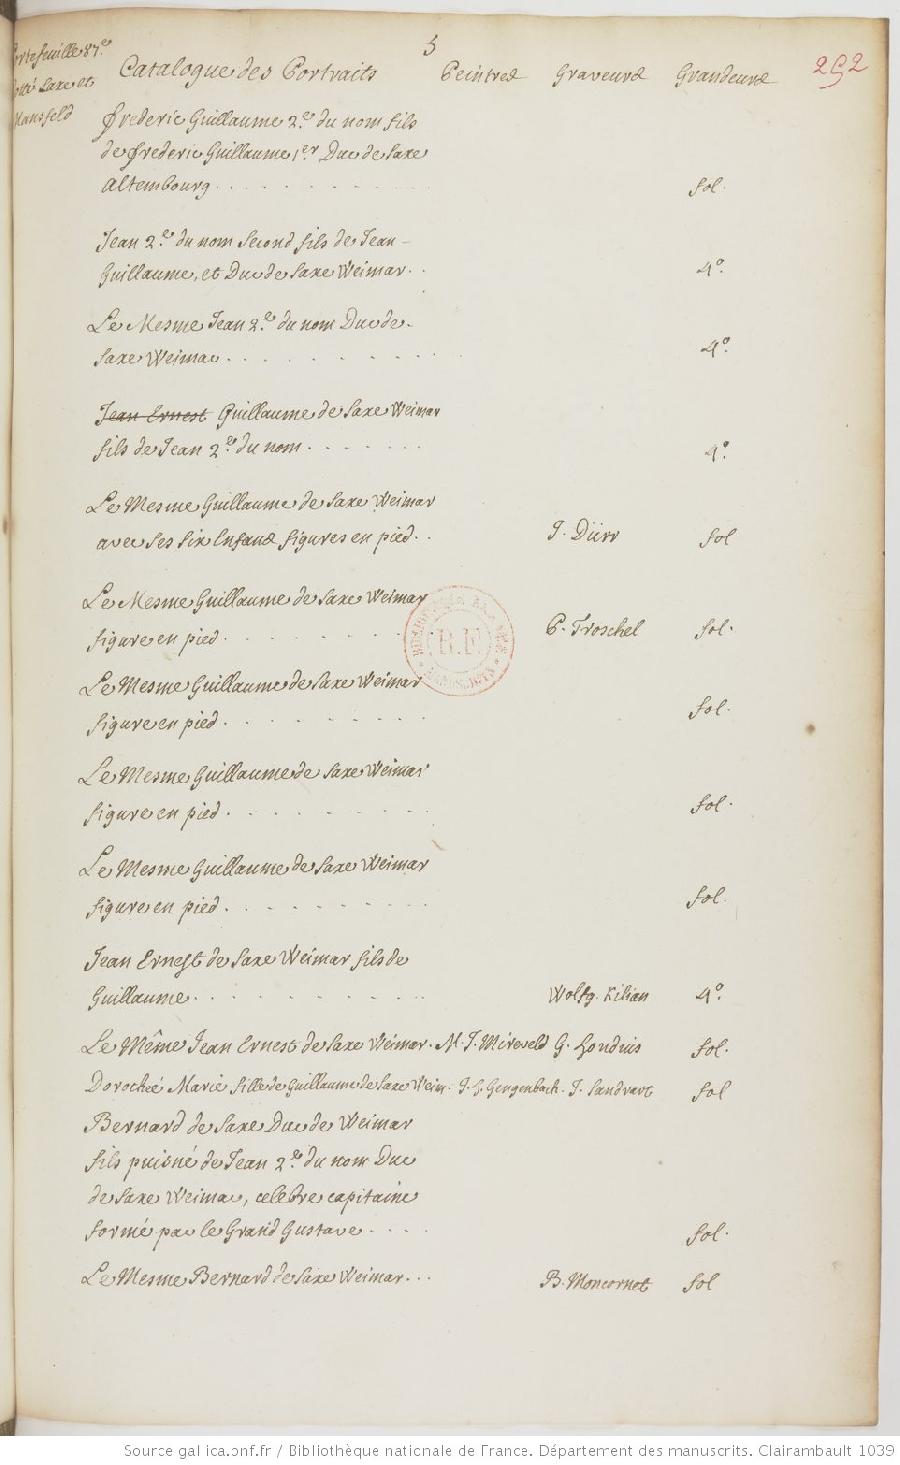 5
252
Portefeuille 87.e
Cotté Saxe et
Mansfeld
Catalogue des Portraits Peintres Graveurs Grandeurs
Frederic Guillaume 2.e du nom fils
de Frederic Guillaume 1er Duc de Saxe
Altembourg . . . . . . . . fol.
Jean 2.e du nom Second fils de Jean
Guillaume, et Duc de Saxe Weimar . . 4.o
Le Mesme Jean 2.e du nom Duc de
Saxe Weimar . . . . . . . . 4.o
Jean Ernest Guillaume de Saxe Weimar
fils de Jean 2.e du nom . . . . . . . 4.o
Le Mesme Guillaume de Saxe Weimar
avec ses six Enfans figures en pied . . J. Dürr fol
Le Mesme Guillaume de Saxe Weimar
figure en pied . . . . . . . . P. Troschel fol.
Le Mesme Guillaume de Saxe Weimar
figure en pied . . . . . . . . fol.
Le Mesme Guillaume de Saxe Weimar
figure en pied . . . . . . . . fol.
Le Mesme Guillaume de Saxe Weimar
figure en pied . . . . . . . . fol.
Jean Ernest de Saxe Weimar fils de
Guillaume . . . . . . . . Wolfg. Kilian 4.o
Le Même Jean Ernest de Saxe Weimar. M. J. Mireveld G. fol.
Dorothée Marie fille de Guillaume de Saxe Weim. J. G. Gengenbach. J. Sandrart fol
Bernard de Saxe Duc de Weimar
fils puisné de Jean 2.e du nom Duc
de Saxe Weimar, celebre capitaine
formé par le Grand Gustave . . . . fol.
Le Mesme Bernard de Saxe Weimar . . . B. Moncornet fol
B.F.
Source gallica.bnf.fr / Bibliothèque nationale de France. Département des manuscrits. Clairambault 1039